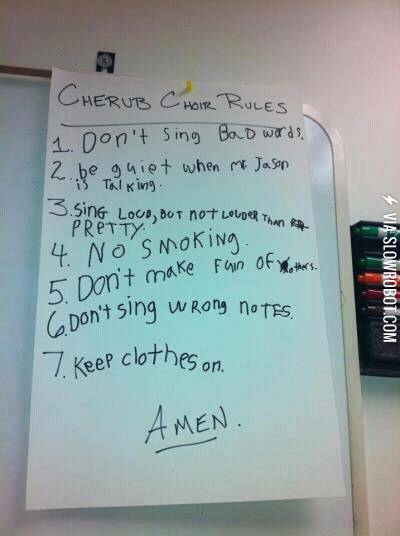 CHERUB CHOIR RULES
1. Don't Sing BaD words.
2. be quiet when mr. Jason
is Talking.
3. SING LOUD, BUT NOT LOUDER THAN
PRETTY.
4. NO SMOKING.
5. Don't make Fun OF others.
6. Don'T sing wrong noTES.
7. Keep clothes on.
AMEN.
VIA SLOWROBOT.COM